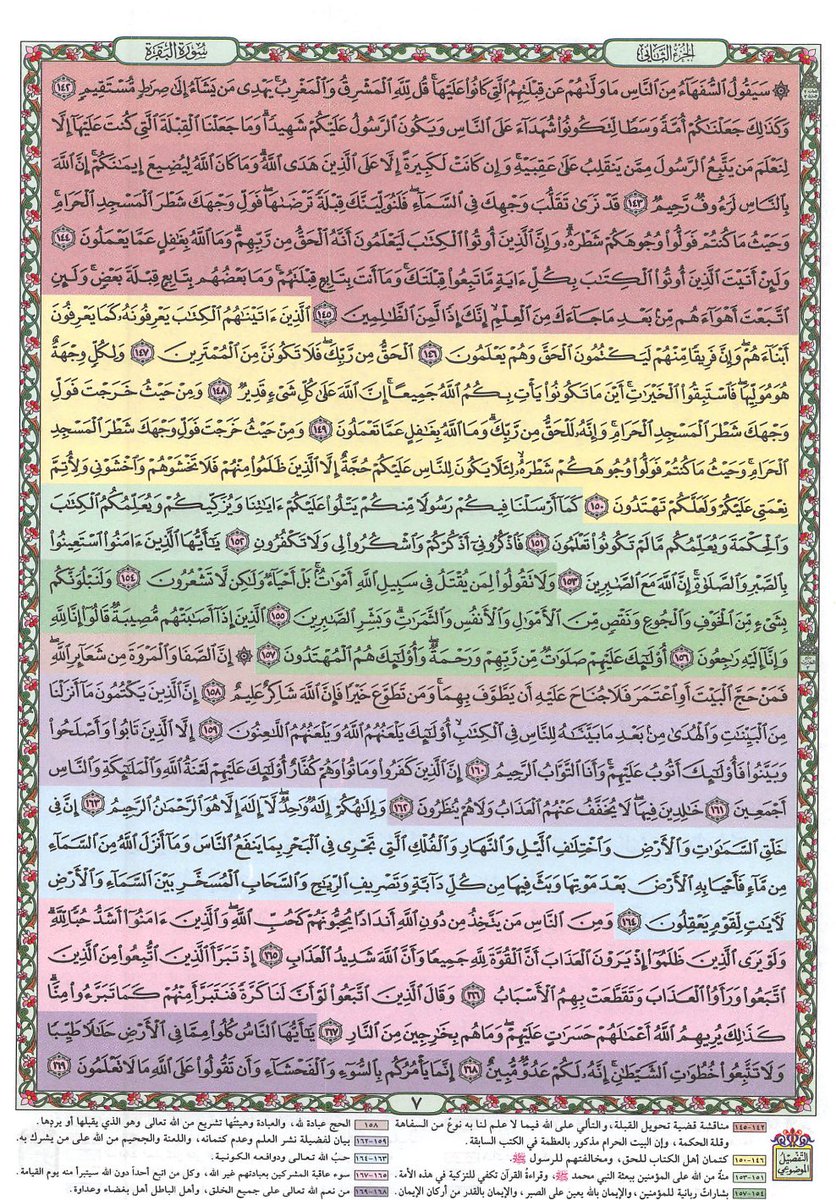 الجزء الثاني
سورة البقرة
۞ سَيَقُولُ ٱلسُّفَهَآءُ مِنَ ٱلنَّاسِ مَا وَلَّىٰهُمْ عَن قِبْلَتِهِمُ ٱلَّتِى كَانُوا۟ عَلَيْهَا ۚ قُل لِّلَّهِ ٱلْمَشْرِقُ وَٱلْمَغْرِبُ ۚ يَهْدِى مَن يَشَآءُ إِلَىٰ صِرَٰطٍ مُّسْتَقِيمٍ ١٤٢
وَكَذَٰلِكَ جَعَلْنَٰكُمْ أُمَّةً وَسَطًا لِّتَكُونُوا۟ شُهَدَآءَ عَلَى ٱلنَّاسِ وَيَكُونَ ٱلرَّسُولُ عَلَيْكُمْ شَهِيدًا ۗ وَمَا جَعَلْنَا ٱلْقِبْلَةَ ٱلَّتِى كُنتَ عَلَيْهَآ إِلَّا
لِنَعْلَمَ مَن يَتَّبِعُ ٱلرَّسُولَ مِمَّن يَنقَلِبُ عَلَىٰ عَقِبَيْهِ ۚ وَإِن كَانَتْ لَكَبِيرَةً إِلَّا عَلَى ٱلَّذِينَ هَدَى ٱللَّهُ ۗ وَمَا كَانَ ٱللَّهُ لِيُضِيعَ إِيمَٰنَكُمْ ۚ إِنَّ ٱللَّهَ
بِٱلنَّاسِ لَرَءُوفٌ رَّحِيمٌ ١٤٣ قَدْ نَرَىٰ تَقَلُّبَ وَجْهِكَ فِى ٱلسَّمَآءِ ۖ فَلَنُوَلِّيَنَّكَ قِبْلَةً تَرْضَىٰهَا ۚ فَوَلِّ وَجْهَكَ شَطْرَ ٱلْمَسْجِدِ ٱلْحَرَامِ ۚ
وَحَيْثُ مَا كُنتُمْ فَوَلُّوا۟ وُجُوهَكُمْ شَطْرَهُۥ ۗ وَإِنَّ ٱلَّذِينَ أُوتُوا۟ ٱلْكِتَٰبَ لَيَعْلَمُونَ أَنَّهُ ٱلْحَقُّ مِن رَّبِّهِمْ ۗ وَمَا ٱللَّهُ بِغَٰفِلٍ عَمَّا يَعْمَلُونَ ١٤٤
وَلَئِنْ أَتَيْتَ ٱلَّذِينَ أُوتُوا۟ ٱلْكِتَٰبَ بِكُلِّ ءَايَةٍ مَّا تَبِعُوا۟ قِبْلَتَكَ ۚ وَمَآ أَنتَ بِتَابِعٍ قِبْلَتَهُمْ ۚ وَمَا بَعْضُهُم بِتَابِعٍ قِبْلَةَ بَعْضٍ ۚ وَلَئِنِ
ٱتَّبَعْتَ أَهْوَآءَهُم مِّنۢ بَعْدِ مَا جَآءَكَ مِنَ ٱلْعِلْمِ ۙ إِنَّكَ إِذًا لَّمِنَ ٱلظَّٰلِمِينَ ١٤٥ ٱلَّذِينَ ءَاتَيْنَٰهُمُ ٱلْكِتَٰبَ يَعْرِفُونَهُۥ كَمَا يَعْرِفُونَ
أَبْنَآءَهُمْ ۖ وَإِنَّ فَرِيقًا مِّنْهُمْ لَيَكْتُمُونَ ٱلْحَقَّ وَهُمْ يَعْلَمُونَ ١٤٦ ٱلْحَقُّ مِن رَّبِّكَ ۖ فَلَا تَكُونَنَّ مِنَ ٱلْمُمْتَرِينَ ١٤٧ وَلِكُلٍّ وِجْهَةٌ
هُوَ مُوَلِّيهَا ۖ فَٱسْتَبِقُوا۟ ٱلْخَيْرَٰتِ ۚ أَيْنَ مَا تَكُونُوا۟ يَأْتِ بِكُمُ ٱللَّهُ جَمِيعًا ۚ إِنَّ ٱللَّهَ عَلَىٰ كُلِّ شَىْءٍ قَدِيرٌ ١٤٨ وَمِنْ حَيْثُ خَرَجْتَ فَوَلِّ
وَجْهَكَ شَطْرَ ٱلْمَسْجِدِ ٱلْحَرَامِ ۖ وَإِنَّهُۥ لَلْحَقُّ مِن رَّبِّكَ ۗ وَمَا ٱللَّهُ بِغَٰفِلٍ عَمَّا تَعْمَلُونَ ١٤٩ وَمِنْ حَيْثُ خَرَجْتَ فَوَلِّ وَجْهَكَ شَطْرَ ٱلْمَسْجِدِ
ٱلْحَرَامِ ۚ وَحَيْثُ مَا كُنتُمْ فَوَلُّوا۟ وُجُوهَكُمْ شَطْرَهُۥ لِئَلَّا يَكُونَ لِلنَّاسِ عَلَيْكُمْ حُجَّةٌ إِلَّا ٱلَّذِينَ ظَلَمُوا۟ مِنْهُمْ فَلَا تَخْشَوْهُمْ وَٱخْشَوْنِى وَلِأُتِمَّ
نِعْمَتِى عَلَيْكُمْ وَلَعَلَّكُمْ تَهْتَدُونَ ١٥٠ كَمَآ أَرْسَلْنَا فِيكُمْ رَسُولًا مِّنكُمْ يَتْلُوا۟ عَلَيْكُمْ ءَايَٰتِنَا وَيُزَكِّيكُمْ وَيُعَلِّمُكُمُ ٱلْكِتَٰبَ
وَٱلْحِكْمَةَ وَيُعَلِّمُكُم مَّا لَمْ تَكُونُوا۟ تَعْلَمُونَ ١٥١ فَٱذْكُرُونِىٓ أَذْكُرْكُمْ وَٱشْكُرُوا۟ لِى وَلَا تَكْفُرُونِ ١٥٢ يَٰٓأَيُّهَا ٱلَّذِينَ ءَامَنُوا۟ ٱسْتَعِينُوا۟
بِٱلصَّبْرِ وَٱلصَّلَوٰةِ ۚ إِنَّ ٱللَّهَ مَعَ ٱلصَّٰبِرِينَ ١٥٣ وَلَا تَقُولُوا۟ لِمَن يُقْتَلُ فِى سَبِيلِ ٱللَّهِ أَمْوَٰتٌۢ ۚ بَلْ أَحْيَآءٌ وَلَٰكِن لَّا تَشْعُرُونَ ١٥٤ وَلَنَبْلُوَنَّكُم
بِشَىْءٍ مِّنَ ٱلْخَوْفِ وَٱلْجُوعِ وَنَقْصٍ مِّنَ ٱلْأَمْوَٰلِ وَٱلْأَنفُسِ وَٱلثَّمَرَٰتِ ۗ وَبَشِّرِ ٱلصَّٰبِرِينَ ١٥٥ ٱلَّذِينَ إِذَآ أَصَٰبَتْهُم مُّصِيبَةٌ قَالُوٓا۟ إِنَّا لِلَّهِ
وَإِنَّآ إِلَيْهِ رَٰجِعُونَ ١٥٦ أُو۟لَٰٓئِكَ عَلَيْهِمْ صَلَوَٰتٌ مِّن رَّبِّهِمْ وَرَحْمَةٌ ۖ وَأُو۟لَٰٓئِكَ هُمُ ٱلْمُهْتَدُونَ ١٥٧ ۞ إِنَّ ٱلصَّفَا وَٱلْمَرْوَةَ مِن شَعَآئِرِ ٱللَّهِ ۖ
فَمَنْ حَجَّ ٱلْبَيْتَ أَوِ ٱعْتَمَرَ فَلَا جُنَاحَ عَلَيْهِ أَن يَطَّوَّفَ بِهِمَا ۚ وَمَن تَطَوَّعَ خَيْرًا فَإِنَّ ٱللَّهَ شَاكِرٌ عَلِيمٌ ١٥٨ إِنَّ ٱلَّذِينَ يَكْتُمُونَ مَآ أَنزَلْنَا
مِنَ ٱلْبَيِّنَٰتِ وَٱلْهُدَىٰ مِنۢ بَعْدِ مَا بَيَّنَّٰهُ لِلنَّاسِ فِى ٱلْكِتَٰبِ ۙ أُو۟لَٰٓئِكَ يَلْعَنُهُمُ ٱللَّهُ وَيَلْعَنُهُمُ ٱللَّٰعِنُونَ ١٥٩ إِلَّا ٱلَّذِينَ تَابُوا۟ وَأَصْلَحُوا۟
وَبَيَّنُوا۟ فَأُو۟لَٰٓئِكَ أَتُوبُ عَلَيْهِمْ ۚ وَأَنَا ٱلتَّوَّابُ ٱلرَّحِيمُ ١٦٠ إِنَّ ٱلَّذِينَ كَفَرُوا۟ وَمَاتُوا۟ وَهُمْ كُفَّارٌ أُو۟لَٰٓئِكَ عَلَيْهِمْ لَعْنَةُ ٱللَّهِ وَٱلْمَلَٰٓئِكَةِ وَٱلنَّاسِ
أَجْمَعِينَ ١٦١ خَٰلِدِينَ فِيهَا ۖ لَا يُخَفَّفُ عَنْهُمُ ٱلْعَذَابُ وَلَا هُمْ يُنظَرُونَ ١٦٢ وَإِلَٰهُكُمْ إِلَٰهٌ وَٰحِدٌ ۖ لَّآ إِلَٰهَ إِلَّا هُوَ ٱلرَّحْمَٰنُ ٱلرَّحِيمُ ١٦٣ إِنَّ فِى
خَلْقِ ٱلسَّمَٰوَٰتِ وَٱلْأَرْضِ وَٱخْتِلَٰفِ ٱلَّيْلِ وَٱلنَّهَارِ وَٱلْفُلْكِ ٱلَّتِى تَجْرِى فِى ٱلْبَحْرِ بِمَا يَنفَعُ ٱلنَّاسَ وَمَآ أَنزَلَ ٱللَّهُ مِنَ ٱلسَّمَآءِ
مِن مَّآءٍ فَأَحْيَا بِهِ ٱلْأَرْضَ بَعْدَ مَوْتِهَا وَبَثَّ فِيهَا مِن كُلِّ دَآبَّةٍ وَتَصْرِيفِ ٱلرِّيَٰحِ وَٱلسَّحَابِ ٱلْمُسَخَّرِ بَيْنَ ٱلسَّمَآءِ وَٱلْأَرْضِ
لَءَايَٰتٍ لِّقَوْمٍ يَعْقِلُونَ ١٦٤ وَمِنَ ٱلنَّاسِ مَن يَتَّخِذُ مِن دُونِ ٱللَّهِ أَندَادًا يُحِبُّونَهُمْ كَحُبِّ ٱللَّهِ ۖ وَٱلَّذِينَ ءَامَنُوٓا۟ أَشَدُّ حُبًّا لِّلَّهِ ۗ
وَلَوْ يَرَى ٱلَّذِينَ ظَلَمُوٓا۟ إِذْ يَرَوْنَ ٱلْعَذَابَ أَنَّ ٱلْقُوَّةَ لِلَّهِ جَمِيعًا وَأَنَّ ٱللَّهَ شَدِيدُ ٱلْعَذَابِ ١٦٥ إِذْ تَبَرَّأَ ٱلَّذِينَ ٱتُّبِعُوا۟ مِنَ ٱلَّذِينَ
ٱتَّبَعُوا۟ وَرَأَوُا۟ ٱلْعَذَابَ وَتَقَطَّعَتْ بِهِمُ ٱلْأَسْبَابُ ١٦٦ وَقَالَ ٱلَّذِينَ ٱتَّبَعُوا۟ لَوْ أَنَّ لَنَا كَرَّةً فَنَتَبَرَّأَ مِنْهُمْ كَمَا تَبَرَّءُوا۟ مِنَّا ۗ
كَذَٰلِكَ يُرِيهِمُ ٱللَّهُ أَعْمَٰلَهُمْ حَسَرَٰتٍ عَلَيْهِمْ ۖ وَمَا هُم بِخَٰرِجِينَ مِنَ ٱلنَّارِ ١٦٧ يَٰٓأَيُّهَا ٱلنَّاسُ كُلُوا۟ مِمَّا فِى ٱلْأَرْضِ حَلَٰلًا طَيِّبًا
وَلَا تَتَّبِعُوا۟ خُطُوَٰتِ ٱلشَّيْطَٰنِ ۚ إِنَّهُۥ لَكُمْ عَدُوٌّ مُّبِينٌ ١٦٨ إِنَّمَا يَأْمُرُكُم بِٱلسُّوٓءِ وَٱلْفَحْشَآءِ وَأَن تَقُولُوا۟ عَلَى ٱللَّهِ مَا لَا تَعْلَمُونَ ١٦٩
٧
التفصيل الموضوعي
١٤٢-١٤٥ مناقشة قضية تحويل القبلة، والتألي على الله فيما لا علم لنا به نوعٌ من السفاهة
وقلة الحكمة، وإن البيت الحرام مذكور بالعظمة في الكتب السابقة.
١٤٦-١٥٠ كتمان أهل الكتاب للحق، ومخالفتهم للرسول ﷺ.
١٥١-١٥٢ منةٌ من الله على المؤمنين ببعثة النبي محمد ﷺ، وقراءةُ القرآن تكفي للتزكية في هذه الأمة.
١٥٣-١٥٧ بشارات ربانية للمؤمنين، والإيمان بالله يعين على الصبر، والإيمان بالقدر من أركان الإيمان.
١٥٨ الحج عبادة لله، والعبادة وهيئتُها تشريع من الله تعالى وهو الذي يقبلها أو يردها.
١٥٩-١٦٢ بيان لفضيلة نشر العلم وعدم كتمانه، واللعنة والجحيم من الله على من يشرك به.
١٦٣-١٦٤ حبُّ الله تعالى ودوافعه الكونية.
١٦٥-١٦٧ سوء عاقبة المشركين بعبادتهم غير الله، وكل من اتبع أحداً دون الله سيتبرأ منه يوم القيامة.
١٦٨-١٦٩ من نعم الله تعالى على جميع الخلق، وأهل الباطل أهل بغضاء وعداوة.